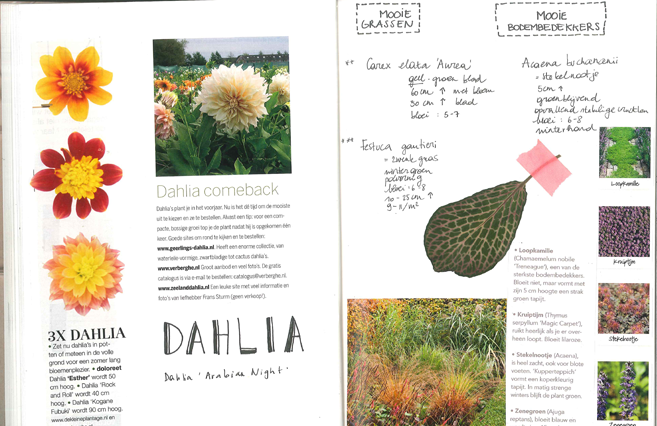 Dahlia comeback
Dahlia's plant je in het voorjaar. Nu is het dé tijd om de mooiste
uit te kiezen en ze te bestellen. Alvast een tip: voor een com-
pacte, bossige groei top je de plant nadat hij is opgekomen één
keer. Goede sites om rond te kijken en te bestellen:
www.geerlings-dahlia.nl Heeft een enorme collectie, van
waterlelie-vormige, zwartbladige tot cactus dahlia's.
www.verberghe.nl Groot aanbod en veel foto's. De gratis
catalogus is via e-mail te bestellen: catalogus@verberghe.nl.
www.zeelanddahlia.nl Een leuke site met veel informatie en
foto's van liefhebber Frans Sturm (geen verkoop!).
3X DAHLIA
• Zet nu dahlia's in pot-
ten of meteen in de volle
grond voor een zomer lang
bloemenplezier. • doloreet
Dahlia 'Esther' wordt 50
cm hoog. • Dahlia 'Rock
and Roll' wordt 40 cm
hoog. • Dahlia 'Kogane
Fubuki' wordt 90 cm hoog.
www.dekleineplantage.nl en
DAHLIA
Dahlia 'Arabian Night'
MOOIE
GRASSEN
MOOIE
BODEMBEDEKKERS
Carex elata 'Aurea'
geel-groen blad
60 cm ↑ met bloem
50 cm ↑ blad
bloei : 5-7
Festuca gautieri
= zwenkgras
wintergroen
polvormig
bloei : 6-8
10-25 cm ↑
9-11/m²
Acaena buchananii
= stekelnootje
5cm ↑
groenblijvend
opvallend stekelige vruchten
bloei : 6-8
winterhard
Loopkamille
Kruiptijm
Stekelnootje
Zenegroen
• Loopkamille
(Chamaemelum nobile
'Treneague'), een van de
sterkste bodembedekkers.
Bloeit niet, maar vormt met
zijn 5 cm hoogte een strak
groen tapijt.
• Kruiptijm (Thymus
serpyllum 'Magic Carpet'),
ruikt heerlijk als je er over-
heen loopt. Bloeit lilaroze.
• Stekelnootje (Acaena),
is heel zacht, ook voor blote
voeten. 'Kupferteppich'
vormt een koperkleurig
tapijt. In matig strenge
winters blijft de plant groen.
• Zenegroen (Ajuga
reptans), bloeit blauw en